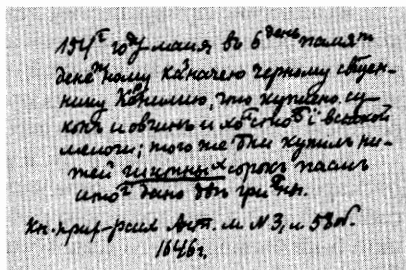 154г году маия, въ 6 день памят
денежному казначею черному свщен-
нику Корнилию, что куплено су-
конъ и овчинъ и холстов і всякой
мелочи; того же дни купилъ ни-
тей сорокъ пасмъ
дано двѣ гривны.
Кн. прих-расх Ант. м N 3, л 58 об.
1646г.